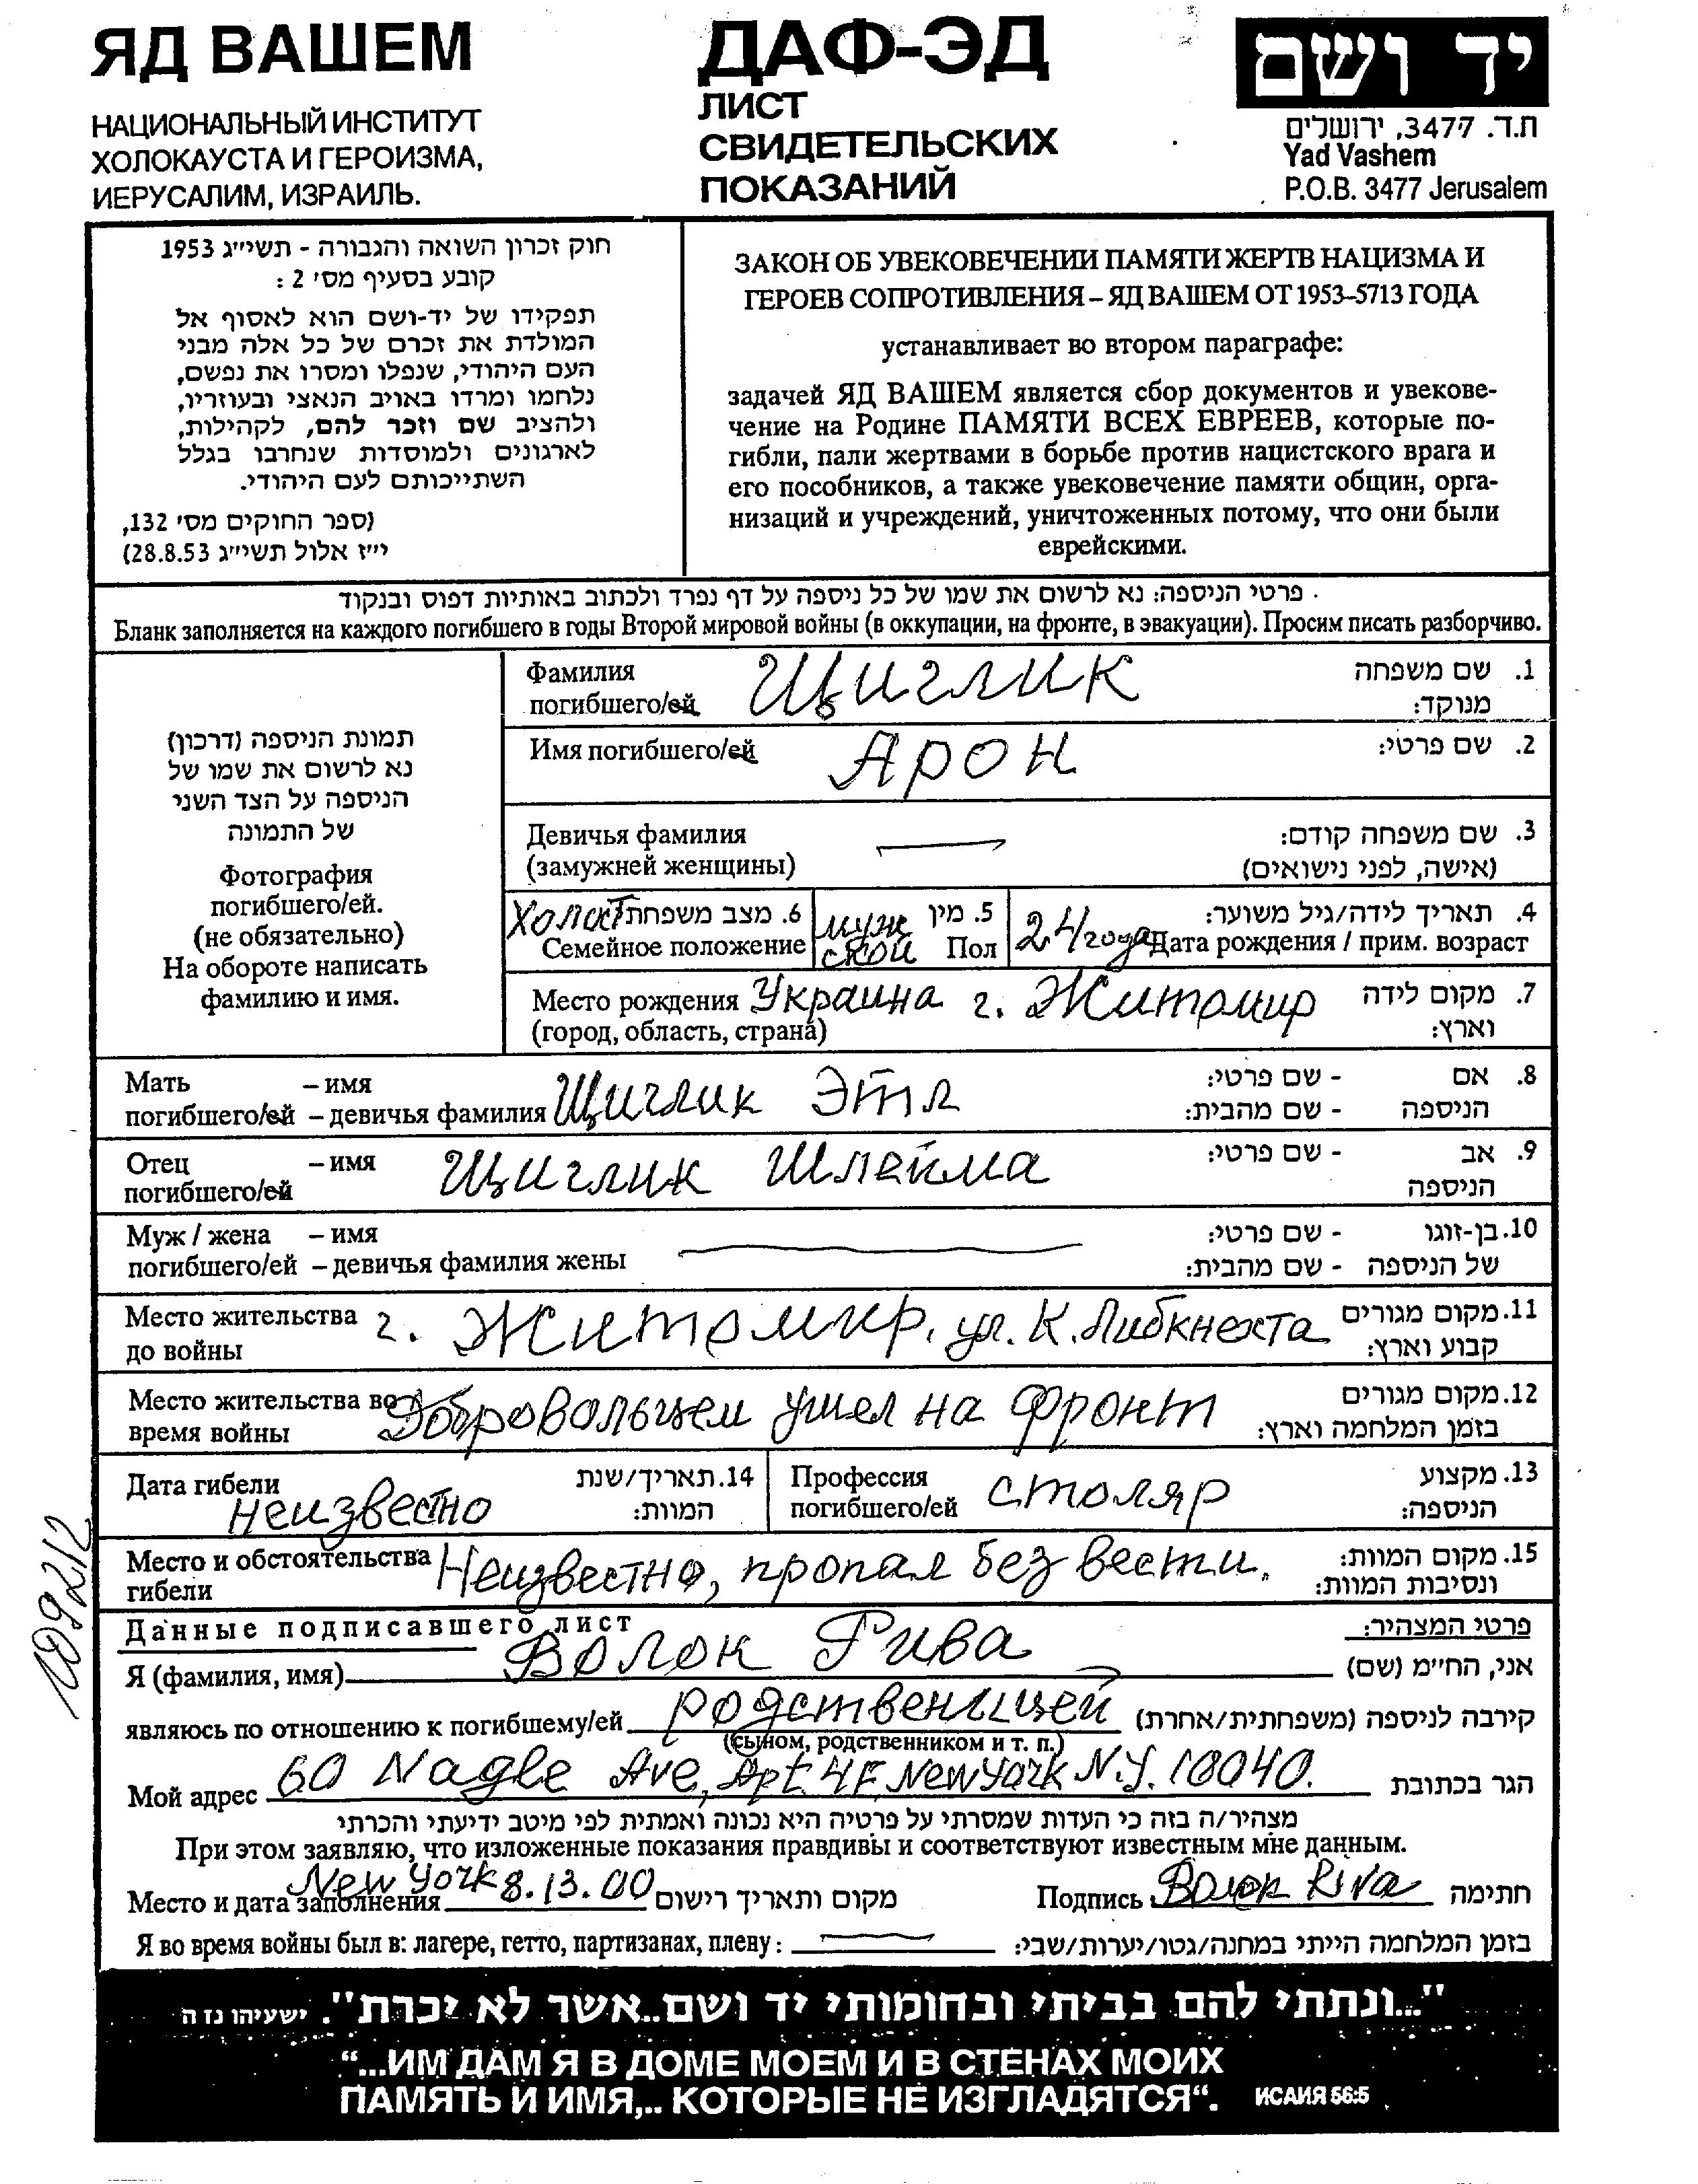 ЯД ВАШЕМ
НАЦИОНАЛЬНЫЙ ИНСТИТУТ
ХОЛОКАУСТА И ГЕРОИЗМА,
ИЕРУСАЛИМ, ИЗРАИЛЬ.
ДАФ-ЭД
ЛИСТ
СВИДЕТЕЛЬСКИХ
ПОКАЗАНИЙ
יד ושם
ת.ד. 3477, ירושלים
Yad Vashem
P.O.B. 3477 Jerusalem
חוק זכרון השואה והגבורה - תשי״ג 1953
קובע בסעיף מס׳ 2 :
תפקידו של יד-ושם הוא לאסוף אל
המולדת את זכרם של כל אלה מבני
העם היהודי, שנפלו ומסרו את נפשם,
נלחמו ומרדו באויב הנאצי ובעוזריו,
ולהציב שם וזכר להם, לקהילות,
לארגונים ולמוסדות שנחרבו בגלל
השתייכותם לעם היהודי.
(ספר החוקים מס׳ 132,
י״ז אלול תשי״ג 28.8.53)
ЗАКОН ОБ УВЕКОВЕЧЕНИИ ПАМЯТИ ЖЕРТВ НАЦИЗМА И
ГЕРОЕВ СОПРОТИВЛЕНИЯ – ЯД ВАШЕМ ОТ 1953–5713 ГОДА
устанавливает во втором параграфе:
задачей ЯД ВАШЕМ является сбор документов и увекове-
чение на Родине ПАМЯТИ ВСЕХ ЕВРЕЕВ, которые по-
гибли, пали жертвами в борьбе против нацистского врага и
его пособников, а также увековечение памяти общин, орга-
низаций и учреждений, уничтоженных потому, что они были
еврейскими.
פרטי הניספה: נא לרשום את שמו של כל ניספה על דף נפרד ולכתוב באותיות דפוס ובנקוד .
Бланк заполняется на каждого погибшего в годы Второй мировой войны (в оккупации, на фронте, в эвакуации). Просим писать разборчиво.
תמונת הניספה (דרכון)
נא לרשום את שמו של
הניספה על הצד השני
של התמונה
Фотография
погибшего/ей.
(не обязательно)
На обороте написать
фамилию и имя.
Фамилия Щиглик 1. שם משפחה
погибшего/ей מנוקד:
Имя погибшего/ей Арон 2. שם פרטי:
Девичья фамилия 3. שם משפחה קודם:
(замужней женщины) (אישה, לפני נישואים)
Холост 6. מצב משפחתי муж 5. מין 24 года 4. תאריך לידה/גיל משוער:
Семейное положение ской Пол Дата рождения / прим. возраст
Место рождения Украина г. Житомир 7. מקום לידה
(город, область, страна) וארץ:
Мать – имя Щиглик Этл - שם פרטי: 8. אם
погибшего/ей – девичья фамилия - שם מהבית: הניספה
Отец – имя Щиглик Шлейма - שם פרטי: 9. אב
погибшего/ей הניספה
Муж / жена – имя - שם פרטי: 10. בן-זוגו
погибшего/ей – девичья фамилия жены - שם מהבית: של הניספה
Место жительства г. Житомир, ул. К. Либкнехта 11. מקום מגורים
до войны קבוע וארץ:
Место жительства во Добровольцем ушел на фронт 12. מקום מגורים
время войны בזמן המלחמה וארץ:
Дата гибели неизвестно 14. תאריך/שנת המוות:
Профессия столяр 13. מקצוע
погибшего/ей הניספה:
Место и обстоятельства Неизвестно, пропал без вести. 15. מקום המוות:
гибели ונסיבות המוות:
109212
Данные подписавшего лист פרטי המצהיר:
Я (фамилия, имя) Волок Рива אני, הח״מ (שם)
являюсь по отношению к погибшему/ей родственницей קירבה לניספה (משפחתית/אחרת)
(сыном, родственником и т. п.)
Мой адрес 60 Nagle Ave, Apt. 4F, New York N.Y. 10040. הגר בכתובת
מצהיר/ה בזה כי העדות שמסרתי על פרטיה היא נכונה ואמתית לפי מיטב ידיעתי והכרתי
При этом заявляю, что изложенные показания правдивы и соответствуют известным мне данным.
Место и дата заполнения New York 8.13.00 מקום ותאריך רישום Подпись Волок Riva חתימה
Я во время войны был в: лагере, гетто, партизанах, плену : בזמן המלחמה הייתי במחנה/גטו/יערות/שבי:
"...ונתתי להם בביתי ובחומותי יד ושם..אשר לא יכרת". ישעיהו נז ה
“...ИМ ДАМ Я В ДОМЕ МОЕМ И В СТЕНАХ МОИХ
ПАМЯТЬ И ИМЯ,.. КОТОРЫЕ НЕ ИЗГЛАДЯТСЯ“. ИСАИЯ 56:5